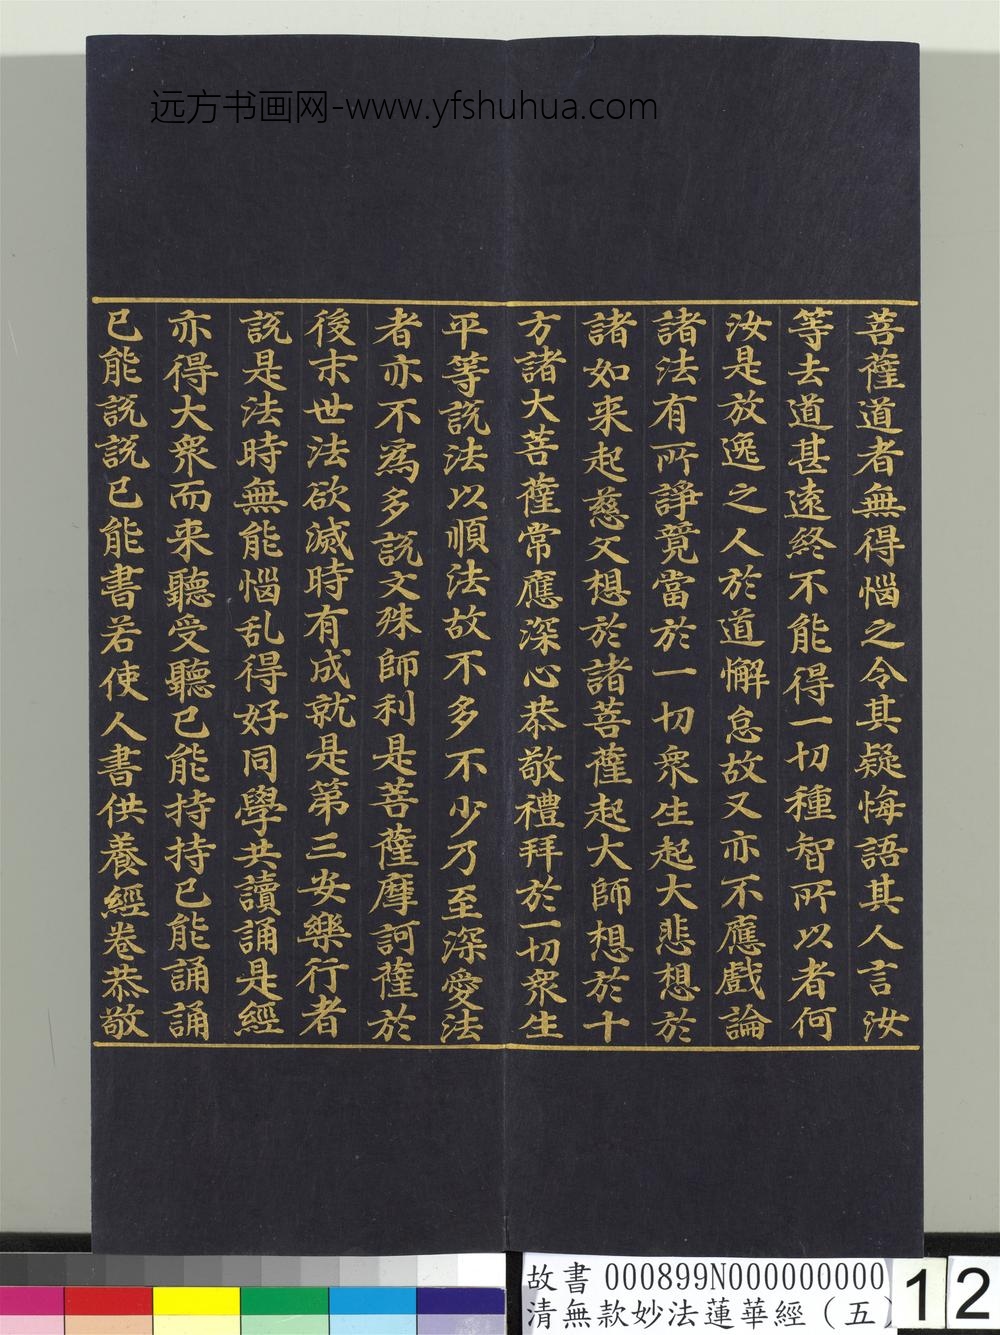 远方书画网-www.yfshuhua.com
菩薩道者無得惱之令其疑悔語其人言汝
等去道甚遠終不能得一切種智所以者何
汝是放逸之人於道懈怠故又亦不應戲論
諸法有所諍競當於一切衆生起大悲想於
諸如来起慈父想於諸菩薩起大師想於十
方諸大菩薩常應深心恭敬禮拜於一切衆生
平等説法以順法故不多不少乃至深愛法
者亦不爲多説文殊師利是菩薩摩訶薩於
後末世法欲滅時有成就是第三安樂行者
説是法時無能惱乱得好同學共讀誦是經
亦得大衆而来聽受聽已能持持已能誦誦
已能説説已能書若使人書供養經卷恭敬
故書 000899N000000000
清無款妙法蓮華經（五）
12